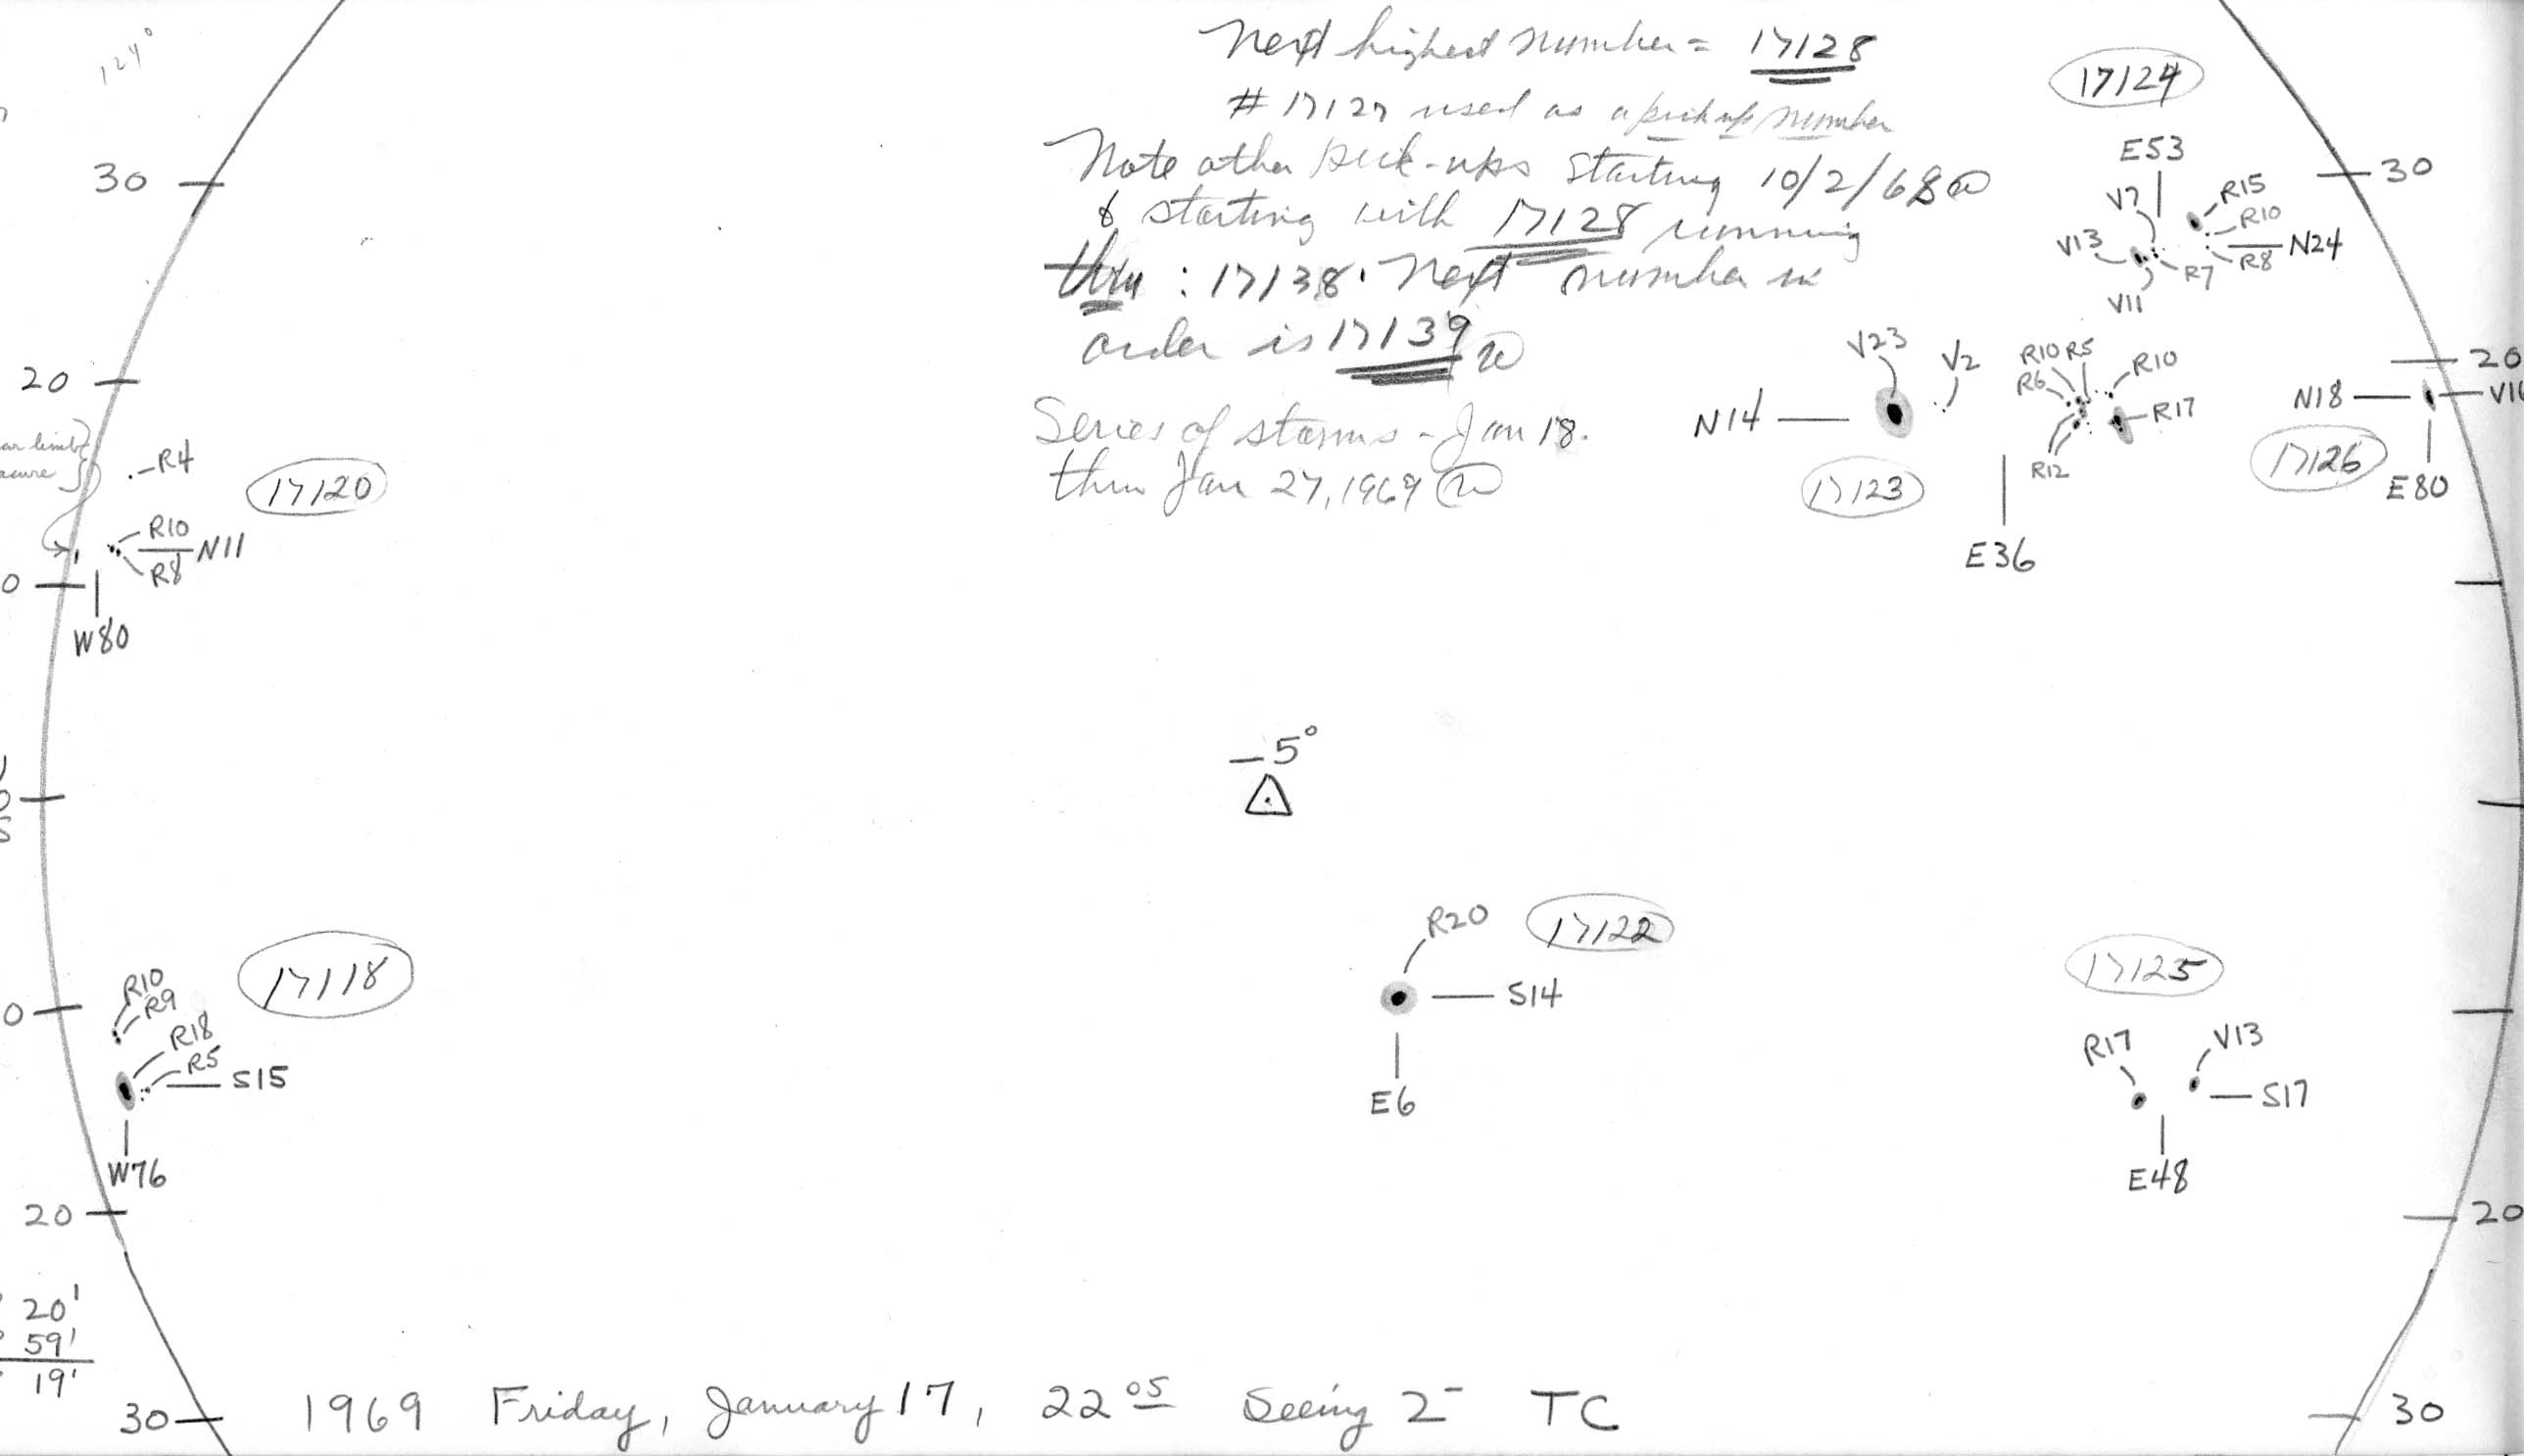 124°
Next highest number = 17128
# 17127 used as a pick up number
Note other pick-ups starting 10/2/68
& starting with 17128 running
thru : 17138. Next number in
order is 17139
Series of storms - Jan 18.
thru Jan 27, 1969
17124
E53
30
30
V7
R15
R10
V13
N24
R7
R8
V11
V23
V2
R10 R5
R10
20
20
R6
N18
N14
R17
R4
17120
17123
R12
17126
E80
R10
N11
R8
E36
0
W80
-5°
0
S
R20
17122
17118
17125
R10
R9
S14
0
R18
R5
S15
R17
V13
S17
E6
W76
E48
20
20
20'
59'
19'
30
1969 Friday, January 17, 22 05 Seeing 2- TC
30